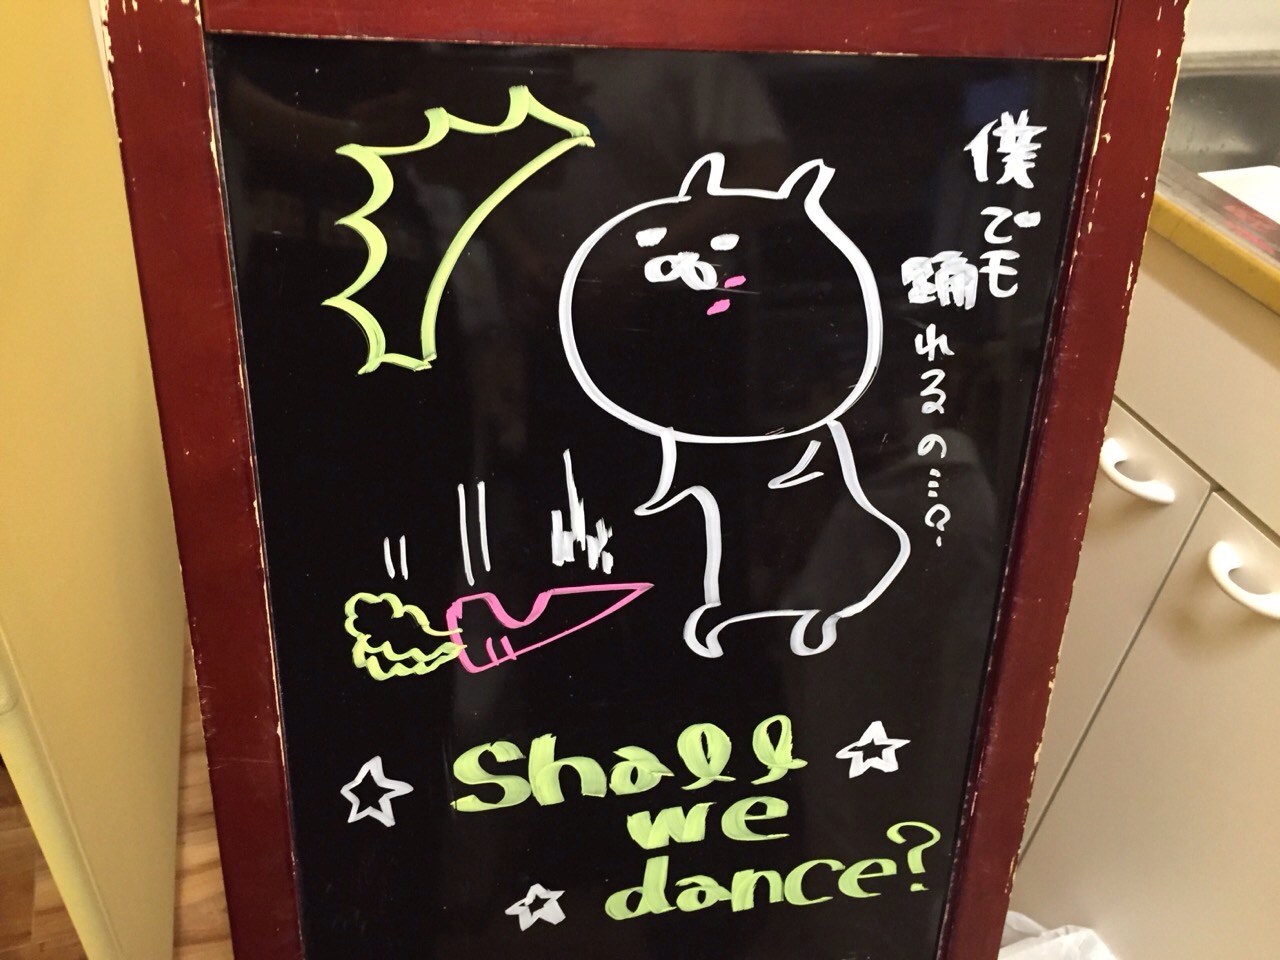 僕でも
踊れるの…?
Shall
we
dance?